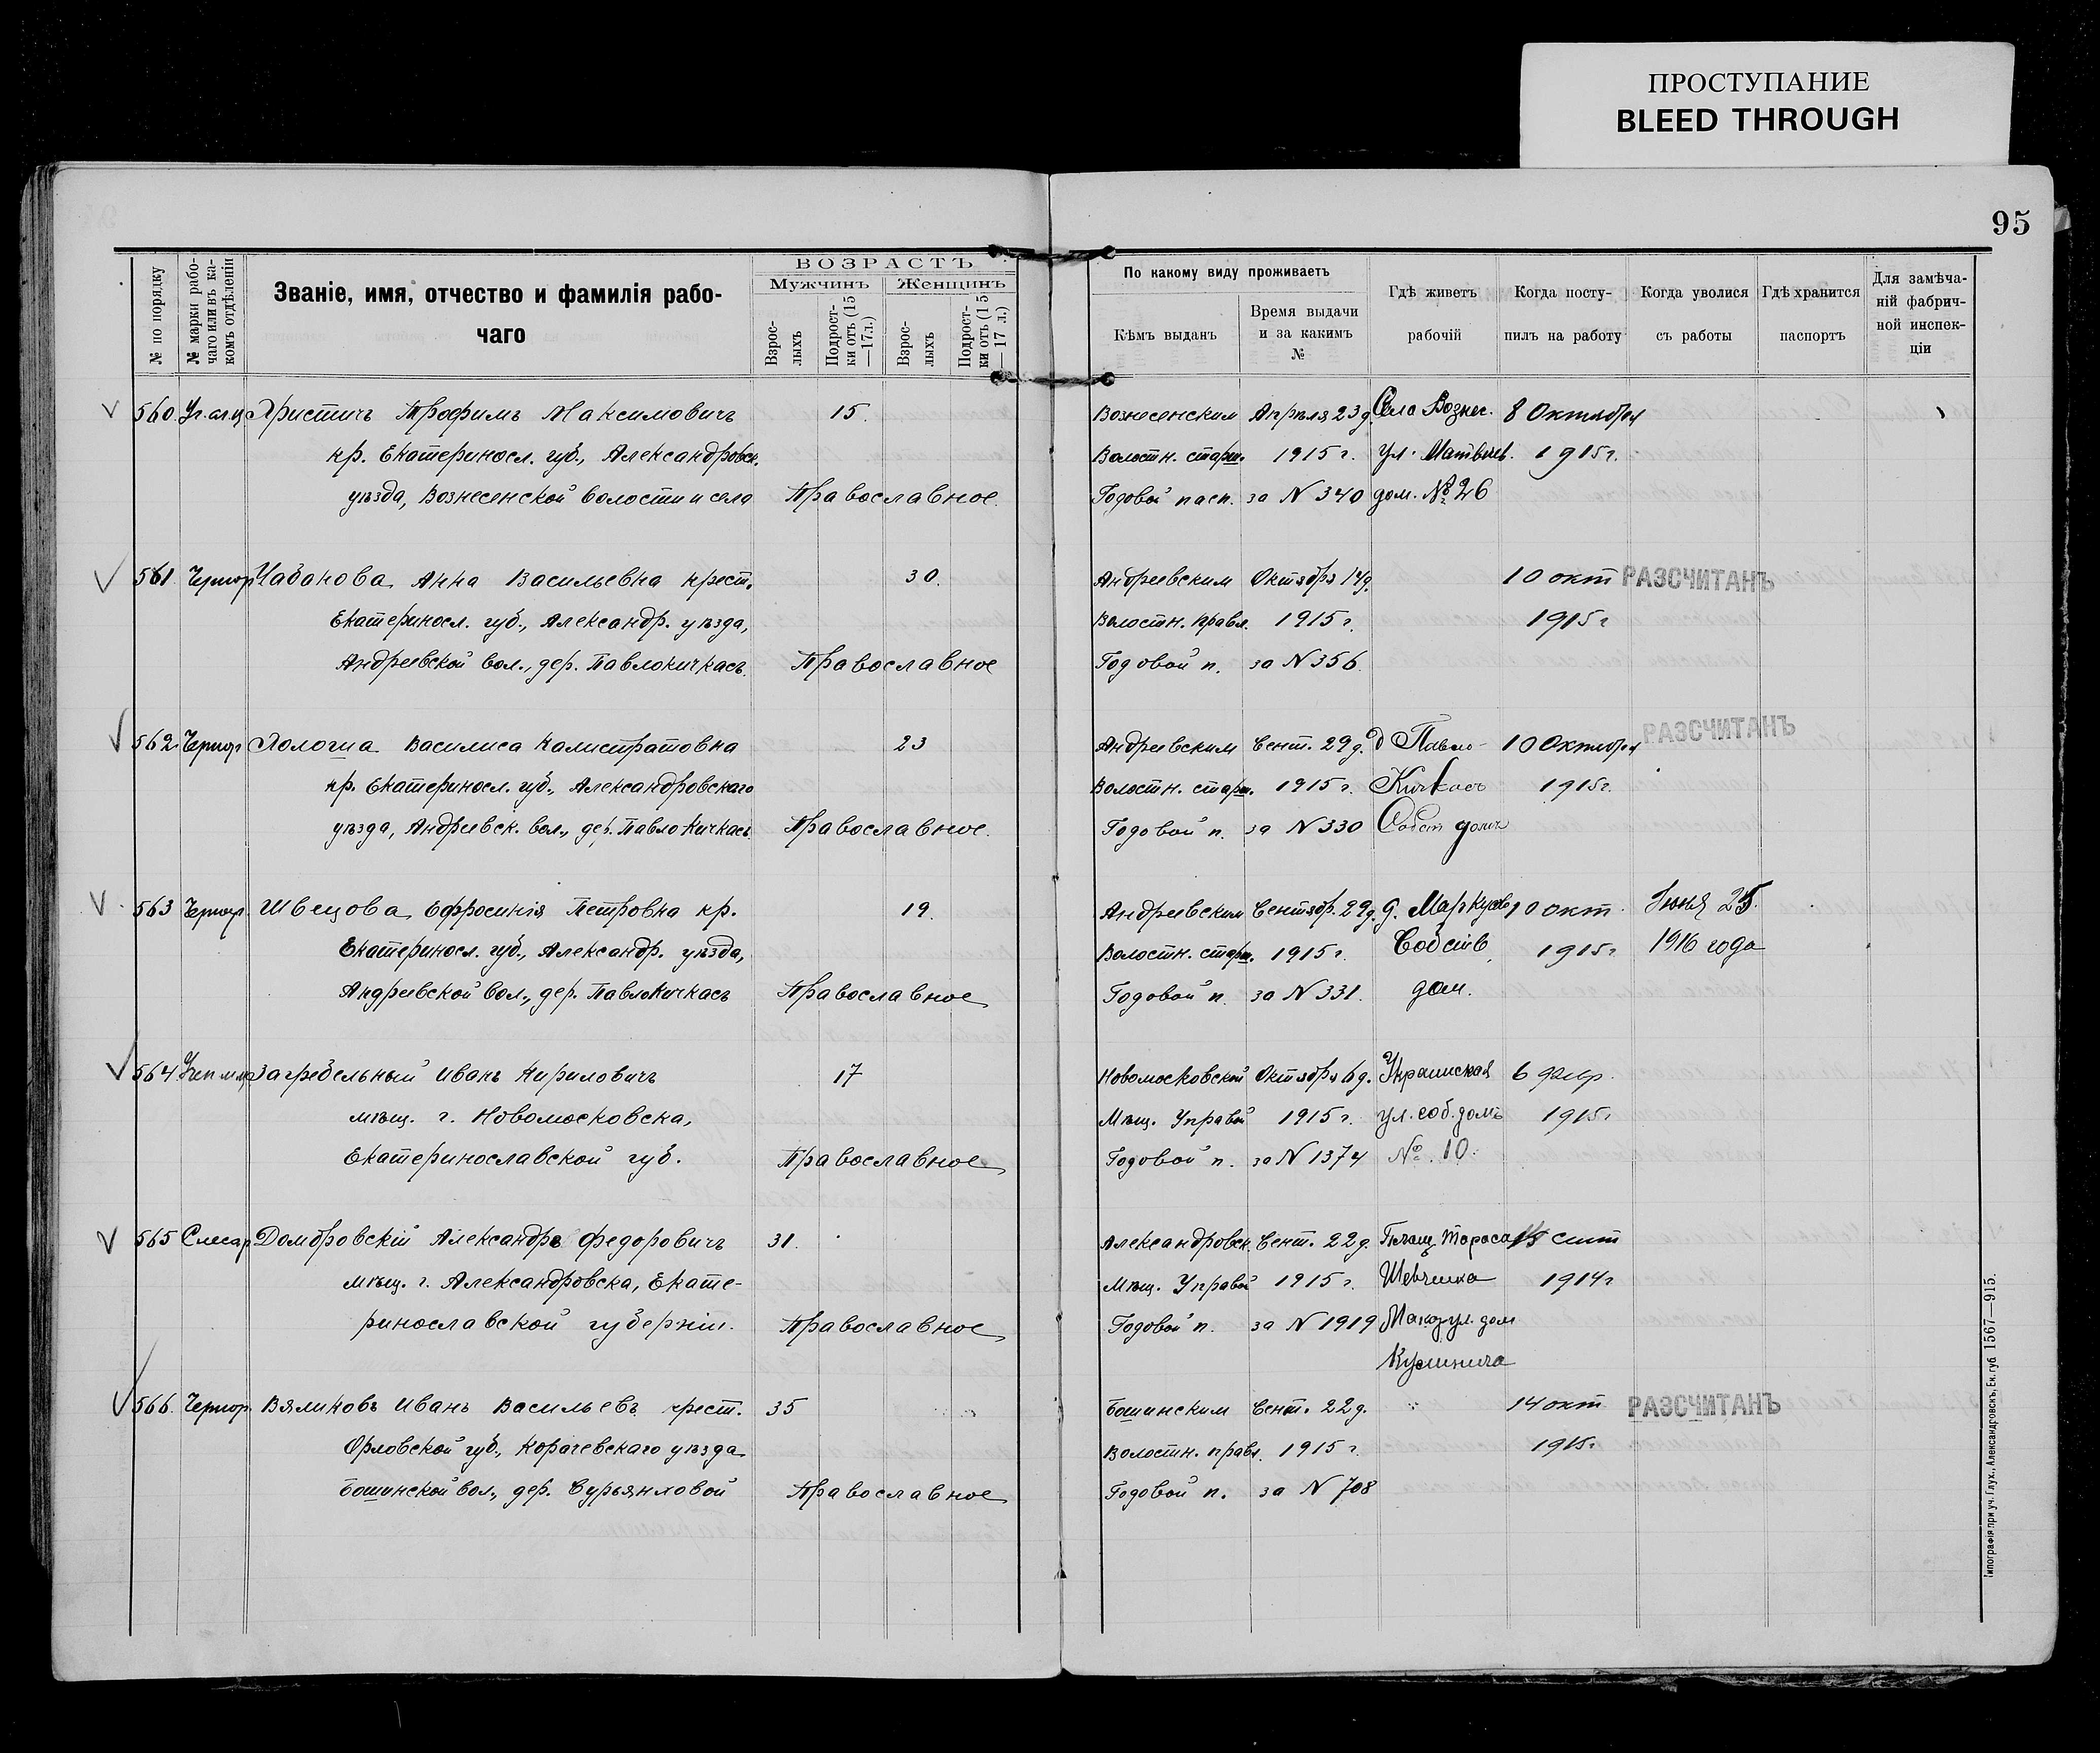 ПРОСТУПАНИЕ
BLEED THROUGH
95
№ по порядку
№ марки рабо-
чаго или въ ка-
комъ отдѣленіи
Званіе, имя, отчество и фамилія рабо-
чаго
ВОЗРАСТЪ
Мужчинъ
Женщинъ
Взрос-
лыхъ
Подрост-
ки отъ (15
—17 л.)
Взрос-
лыхъ
Подрост-
ки отъ (15
— 17 л.)
По какому виду проживаетъ
Кѣмъ выданъ
Время выдачи
и за какимъ
№
Гдѣ живетъ
рабочій
Когда посту-
пилъ на работу
Когда уволися
съ работы
Гдѣ хранится
паспортъ
Для замѣча-
ній фабрич-
ной инспек-
ціи
560 Христичъ Трофимъ Максимовичъ 15. Вознесенским Апрѣля 23 д. Село Вознес. 8 Октября
кр. Екатеринosл. губ., Александровск. Волостн. старш. 1915 г. ул. Матвѣев. 1915 г.
уѣзда, Вознесенской волости и села Православное. Годовой пасп. за N 340 дом. № 26
561. Чернор Чабанова Анна Васильевна крест. 30. Андреевским Октября 14 д. 10 окт РАЗСЧИТАНЪ
Екатеринocл. губ., Александр. уѣзда, Волостн. правл. 1915 г. 1915 г
Андреевской вол., дер. Павлокичкасъ. Православное Годовой п. за N 356.
562 Чернор Хологиа Василиса Калистратовна 23 Андреевским Сент. 29 д. д Павло- 10 Октября РАЗСЧИТАНЪ
кр. Екатеринocл. губ., Александровскаго Волостн. старш. 1915 г. Кичкасъ 1915 г.
уѣзда, Андреевск. вол., дер. Павло Кичкасъ. Православное. Годовой п. за N 330
563 Чернор. Швецова Ефросинія Петровна кр. 19. Андреевским Сентябр. 29 д. д. 10 окт. Іюня 25.
Екатеринocл. губ., Александр. уѣзда, Волостн. старш. 1915 г. Собств. 1915 г 1916 года
Андреевской вол., дер. Павлокичкасъ Православное Годовой п. за N 331. дом.
564 Загребельный Иванъ Кириловичъ 17 Новомосковской Октября 6 д. Украинская 6
мѣщ. г. Новомосковска, Мѣщ. Управой 1915 г. ул. соб. домъ 1915 г
Екатеринославской губ. Православное Годовой п. за N 1374 № 10.
565 Слесар Домбровскій Александръ Федоровичъ 31. Александровск. Сент. 22 д. Площ Тараса 15 сент
мѣщ. г. Александровска, Екате- Мѣщ. Управой 1915 г. Шевченка 1914 г
ринославской губерніи. Православное Годовой п. за N 1919 ул. дом
566. Чернор. Вяликовъ Иванъ Васильевъ крест. 35 Бошинским Сент. 22 д. 14 окт РАЗСЧИТАНЪ
Орловской губ., Карачевскаго уѣзда Волостн. правл. 1915 г. 1915 г
Бошинской вол., дер. Сурьянховой Православное Годовой п. за N 708
Типографія при уч. Глух., Александровскъ, Ек. губ. 1567—915.